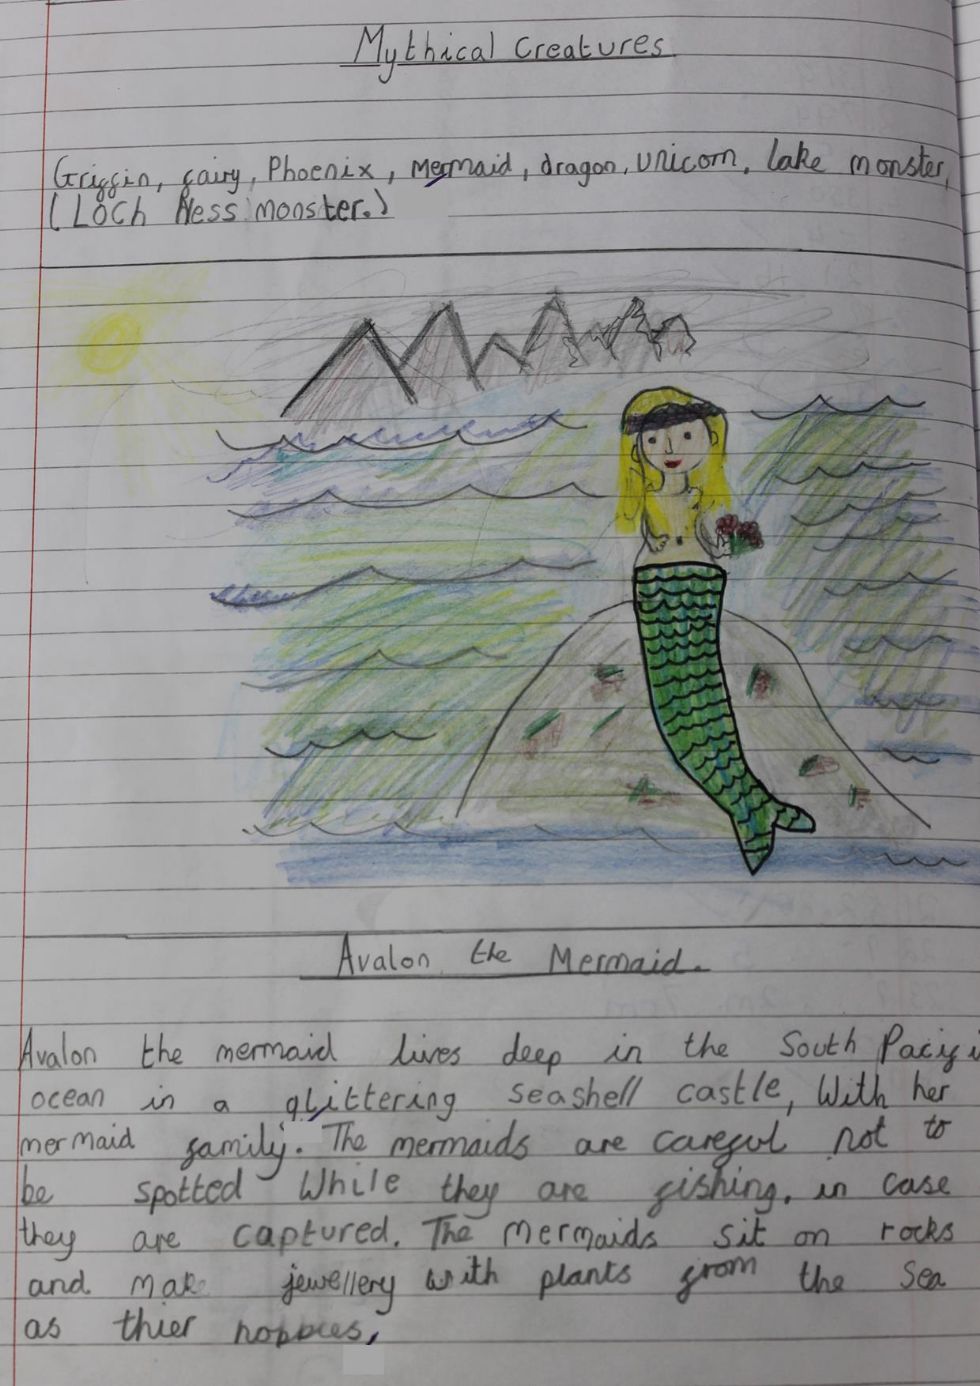 Mythical Creatures
Griffin, fairy, Phoenix, mermaid, dragon, unicorn, lake monster,
(LOCh Ness monster.)
Avalon the Mermaid.
Avalon the mermaid lives deep in the South Pacifi
ocean in a glittering seashell castle, With her
mermaid family. The mermaids are careful not to
be spotted While they are fishing. in case
they are captured. The mermaids sit on rocks
and make jewellery with plants from the sea
as thier hobbies,